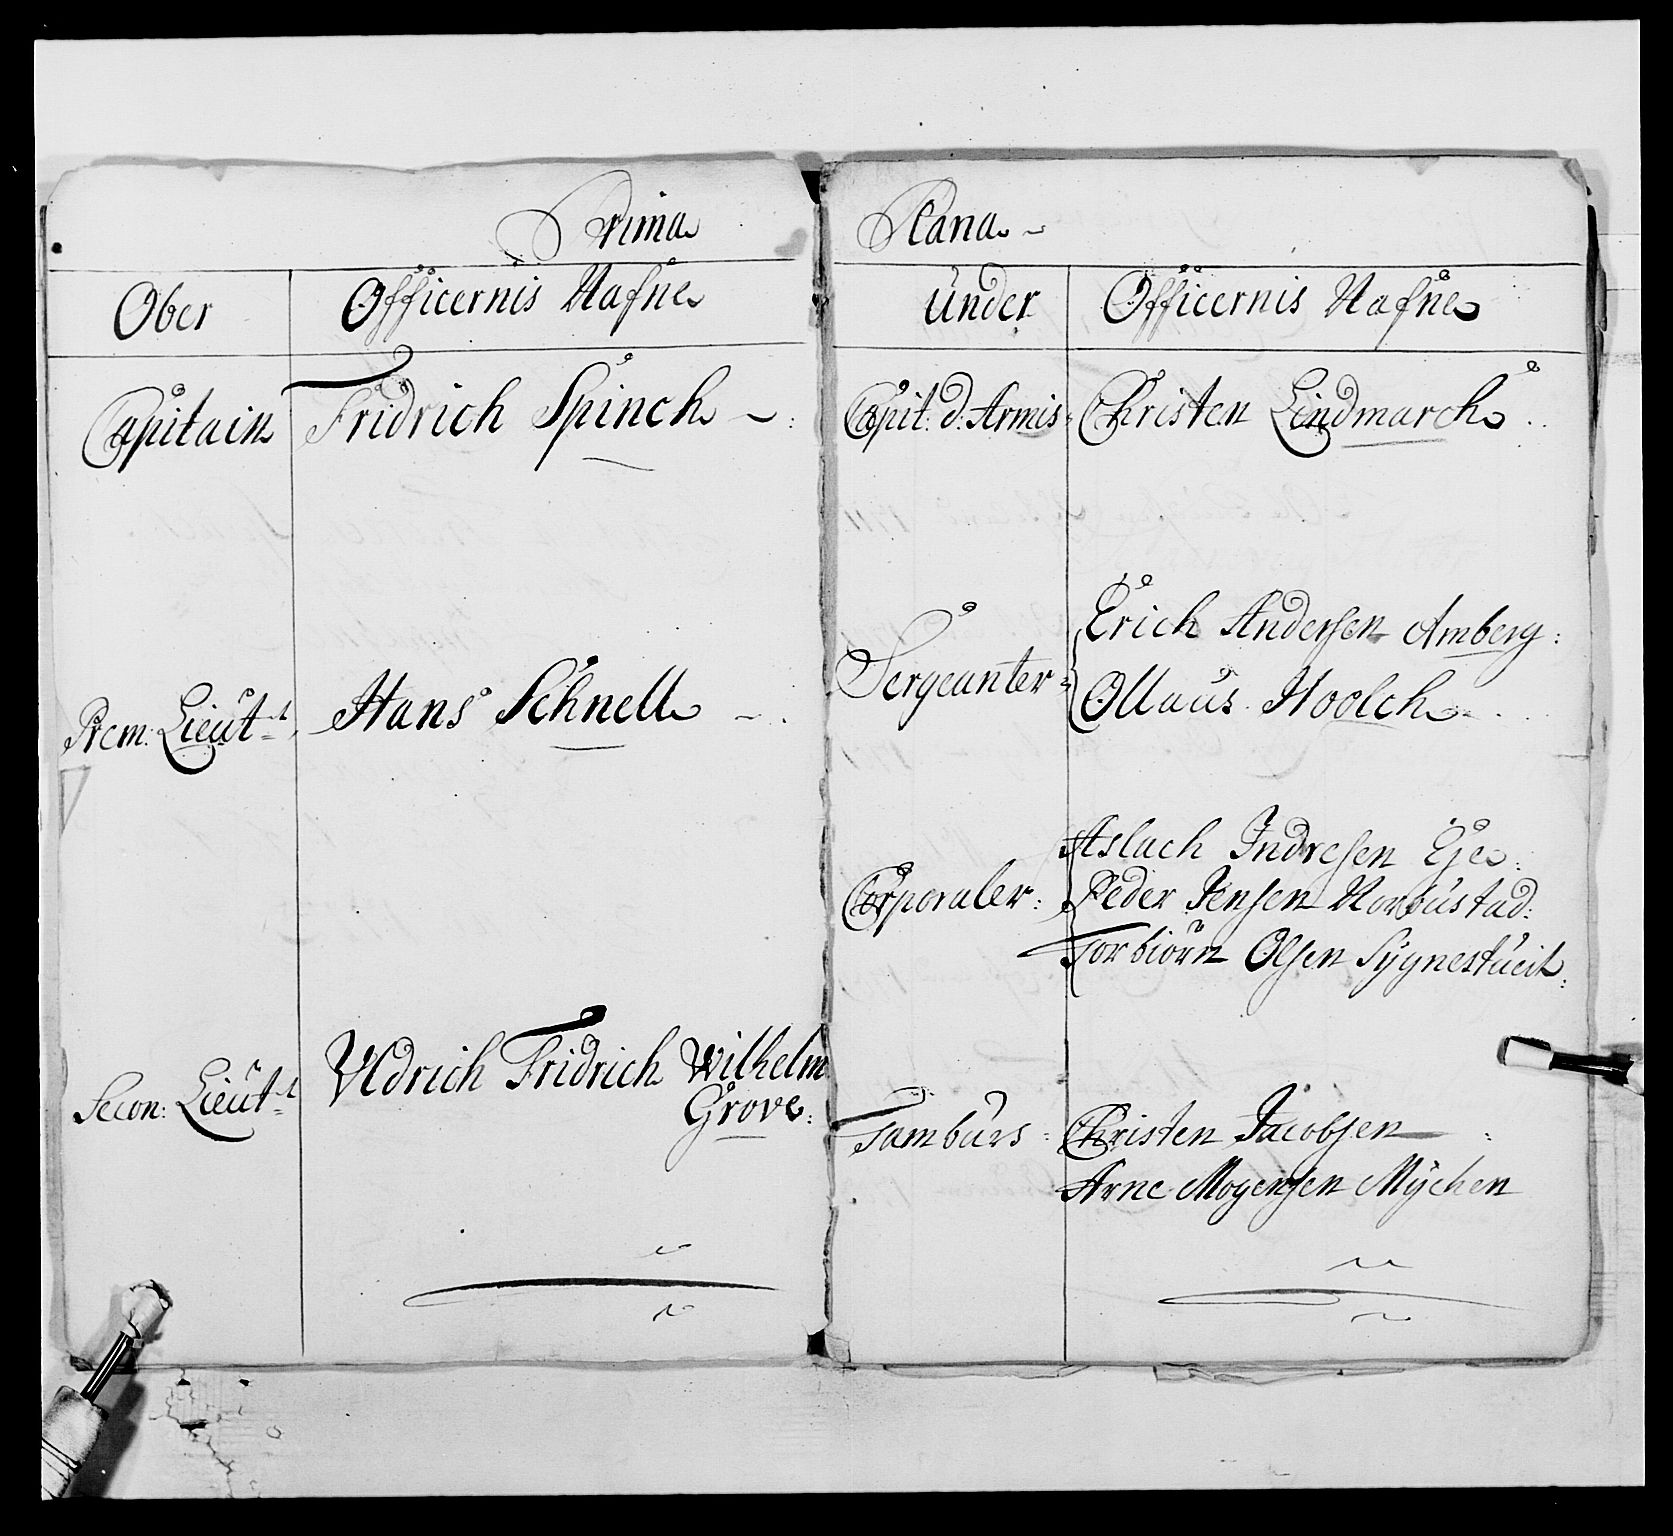 Prima
Ober Officernis Nafne
Capitain Fridrich Spinch
Prem: Lieut Hans Schnell
Secon: Lieut Uldrich Fridrich Wilhelm
Grove
Plana
Under Officernis Nafne
Capit: d: Armis Christen Lindmarch
Erich Andersen Amberg
Sergeanter Ollaus Hoolch
Aslach Indresen Eje
Corporaler: Peder Jensen Norbustad
Torbiörn Olsen Sygnestueit
Tamburs Christen Jacobsen
Arne Mogensen Mÿchen